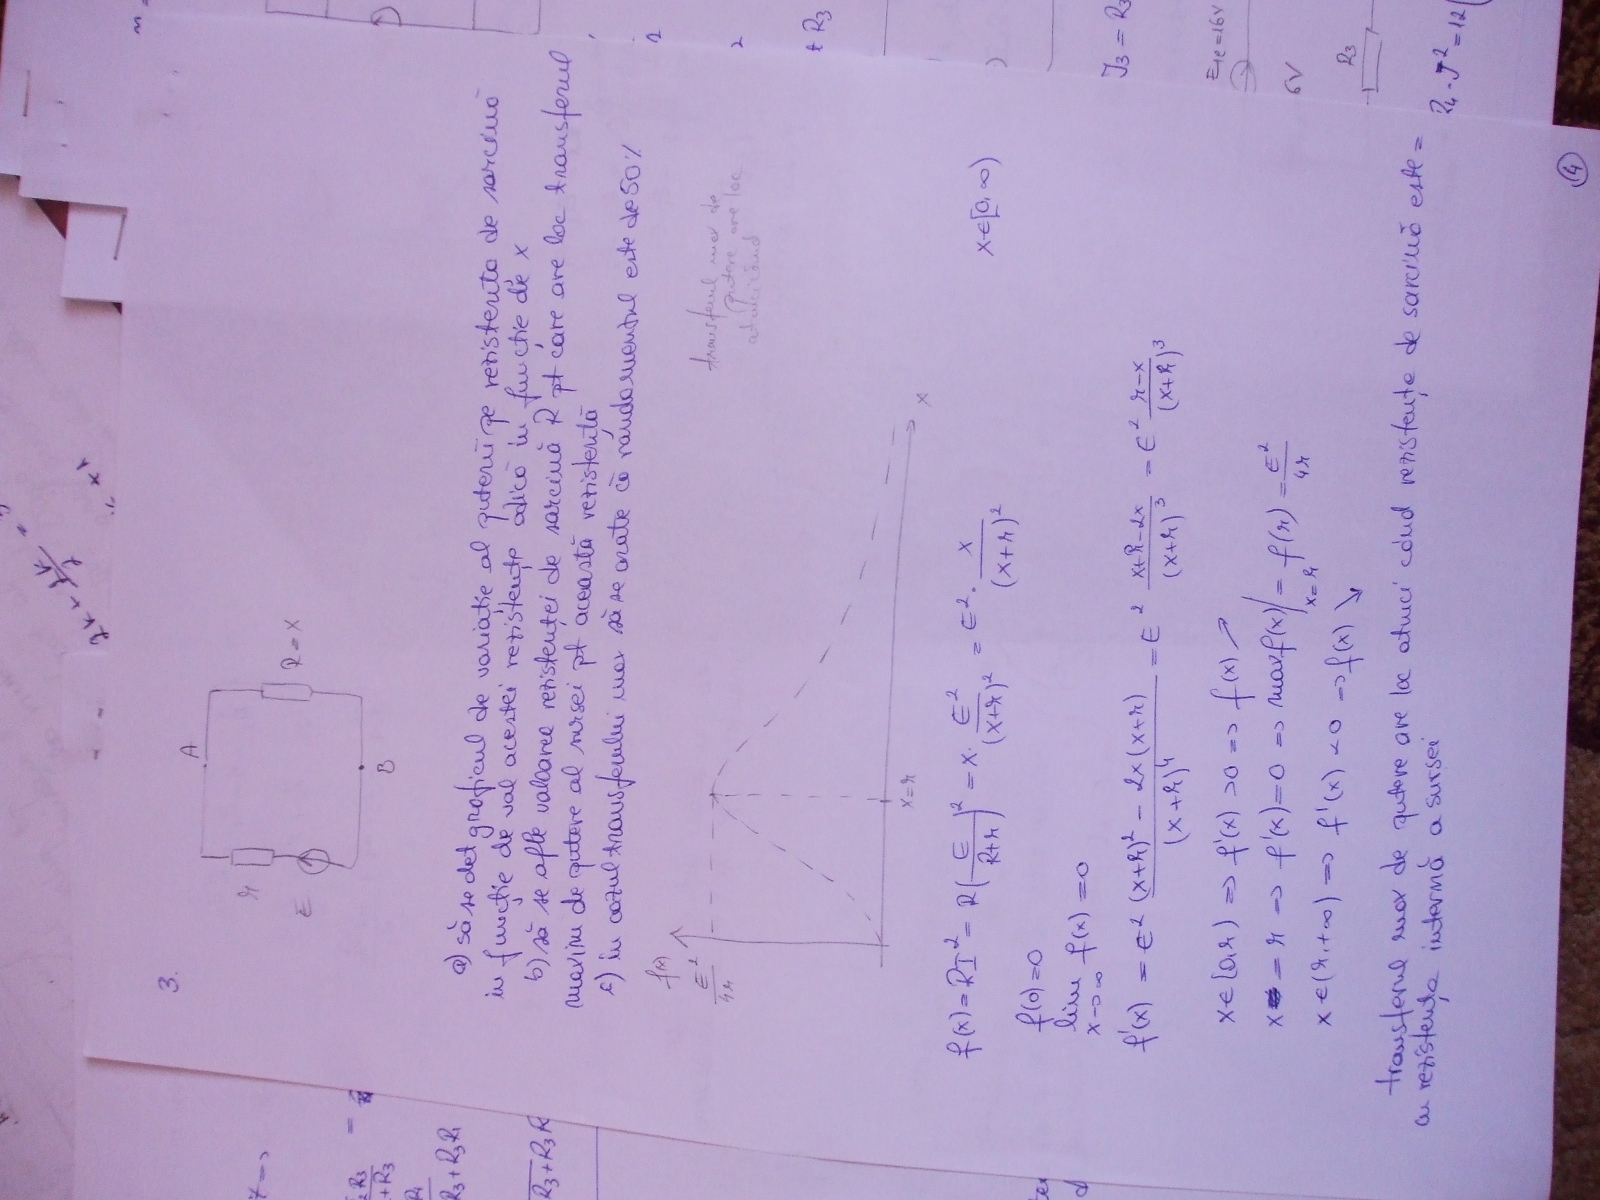 2k + 2k/2 =
x1
3.
A
r
E
R = x
B
a) să se det graficul de variație al puterii pe rezistența de sarcină
în funcție de val acestei rezistențe adică în funcție de x
b) să se afle valoarea rezistenței de sarcină R pt care are loc transferul
maxim de putere al sursei pt această rezistență
c) în cazul transferului max să se arate că randamentul este de 50%
f(x)
E²/4r
transferul max de
putere are loc
atunci când
x=r
x
f(x) = RI² = R(E/(R+r))² = x · E²/(x+r)² = E² · x/(x+r)²
x∈[0,∞)
f(0)=0
lim x→∞ f(x) = 0
f'(x) = E² ((x+r)² − 2x(x+r))/(x+r)⁴ = E² (x+r−2x)/(x+r)³ = E² (r−x)/(x+r)³
x∈[0,r) => f'(x) >0 => f(x) ↗
x = r => f'(x)=0 => maxf(x)|x=r = f(r) = E²/4r
x∈(r,+∞) => f'(x) <0 => f(x) ↘
transferul max de putere are loc atunci când rezistența de sarcină este =
cu rezistența internă a sursei
4
7 =>
R3
+R3
R3 + R3R1
R3+R3R
+ R3
J3 = R3
E1e=16V
6V
R3
R4 · J² = 12